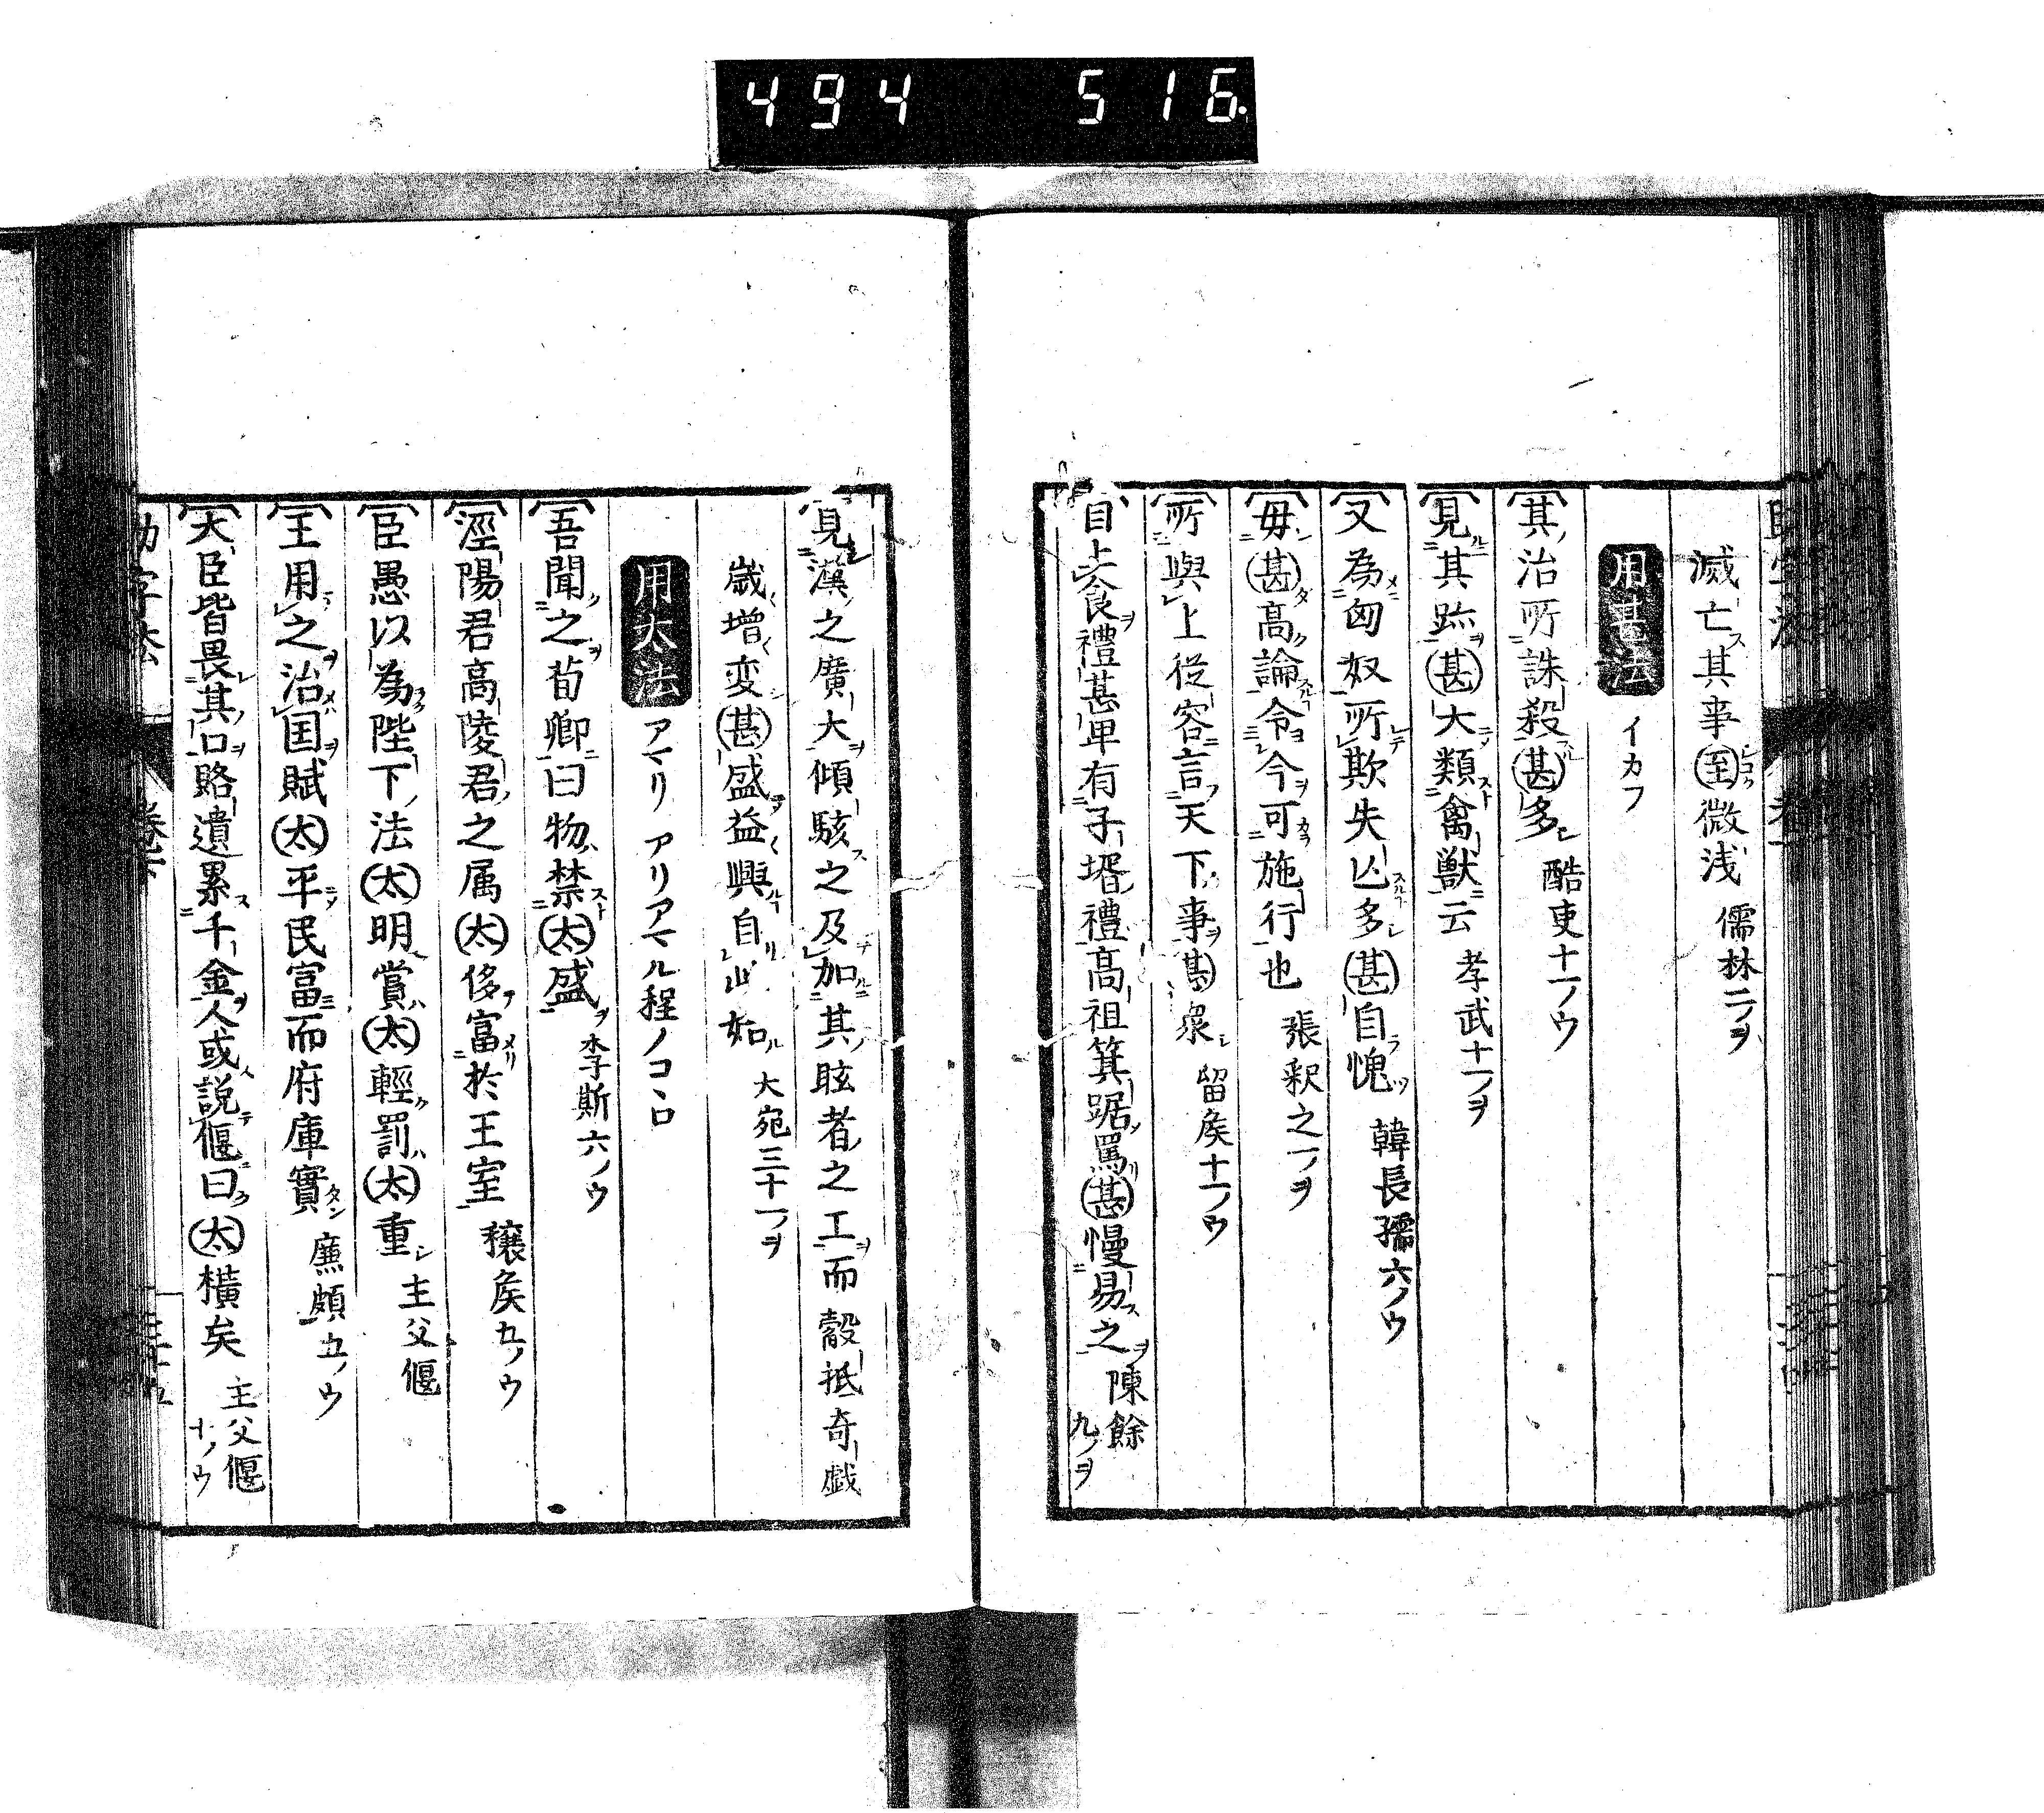 494 516
滅亡ス其事至微浅 儒林二ノヲ
用甚法 イカフ
其治所誅殺甚多 酷吏十一ノウ
見其跡甚大類禽獣云 孝武十一ノヲ
又為匈奴所欺失亾多甚自愧 韓長孺六ノウ
毋甚高論令今可施行也 張釈之一ノヲ
所與上従容言天下事甚衆 留矦十一ノウ
自上食禮甚卑有子壻禮高祖箕踞罵甚慢易之 陳餘九ノヲ
見漢之廣大傾駭之及加其眩者之工而觳抵奇戯
歳増変甚盛益興自此始 大宛三十一ノヲ
用太法 アマリ アリアマル程ノコヽロ
吾聞之荀卿曰物禁太盛 李斯六ノウ
涇陽君高陵君之属太侈富於王室 穣矦九ノウ
臣愚以為陛下法太明賞太輕罰太重 主父偃
王用之治国賦太平民富而府庫實 廉頗五ノウ
大臣皆畏其口賂遺累千金人或説偃曰太横矣 主父偃十ノウ